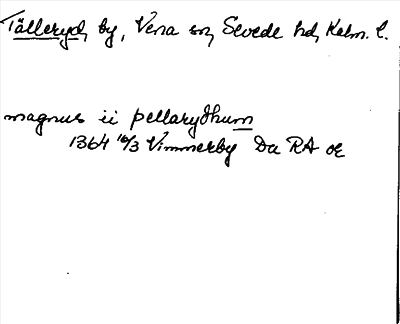 Tälleryd, by, Vena sn, Sevede hd, Kalm. l.
magnus ii þellarydhum
1364 10/3 Vimmerby Da RA or